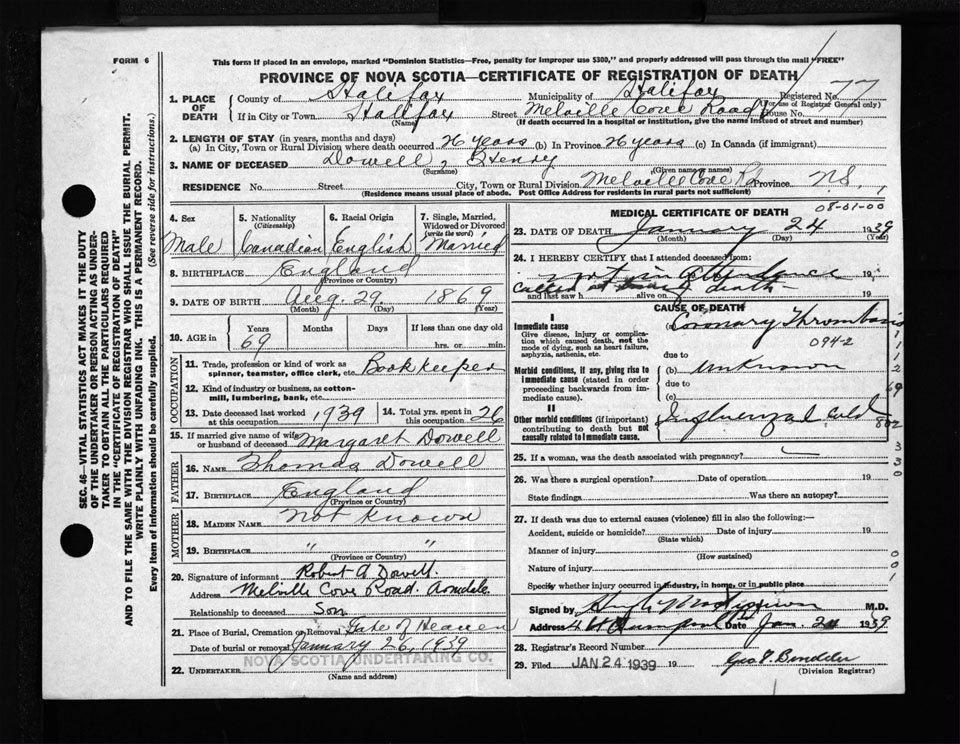 FORM 6
This form if placed in an envelope, marked "Dominion Statistics—Free, penalty for improper use $300," and properly addressed will pass through the mail "FREE"
PROVINCE OF NOVA SCOTIA—CERTIFICATE OF REGISTRATION OF DEATH
1. PLACE OF DEATH County of Halifax Municipality of Halifax Registered No. 77
(For use of Registrar General only)
If in City or Town Halifax Street Melville Cove Road House No.
(Name) (If death occurred in a hospital or institution, give the name instead of street and number)
2. LENGTH OF STAY (in years, months and days)
(a) In City, Town or Rural Division where death occurred 26 years (b) In Province 26 years (c) In Canada (if immigrant)
3. NAME OF DECEASED Dowell, Henry
(Surname) (Given name or names)
RESIDENCE No. Street City, Town or Rural Division Melville Cove Rd Province N.S.
(Residence means usual place of abode. Post Office Address for residents in rural parts not sufficient)
08-01-00
4. Sex
Male
5. Nationality
(Citizenship)
Canadian
6. Racial Origin
English
7. Single, Married, Widowed or Divorced
(write the word)
Married
8. BIRTHPLACE England
(Province or Country)
9. DATE OF BIRTH Aug. 29, 1869
(Month) (Day) (Year)
10. AGE in Years Months Days If less than one day old
69 hrs. or min.
OCCUPATION
11. Trade, profession or kind of work as spinner, teamster, office clerk, etc. Bookkeeper
12. Kind of industry or business, as cotton-mill, lumbering, bank, etc.
13. Date deceased last worked at this occupation 1939
14. Total yrs. spent in this occupation 26
15. If married give name of wife or husband of deceased Margaret Dowell
FATHER
16. NAME Thomas Dowell
17. BIRTHPLACE England
(Province or Country)
MOTHER
18. MAIDEN NAME Not known
19. BIRTHPLACE " "
(Province or Country)
20. Signature of informant Robert A Dowell.
Address Melville Cove Road. Armdale.
Relationship to deceased Son
21. Place of Burial, Cremation or Removal Gate of Heaven
Date of burial or removal January 26, 1939
22. UNDERTAKER NOVA SCOTIA UNDERTAKING CO.
(Name and address)
MEDICAL CERTIFICATE OF DEATH
23. DATE OF DEATH January 24 1939
(Month) (Day) (Year)
24. I HEREBY CERTIFY that I attended deceased from:
not in attendance 19
called at death
and last saw h alive on 19
CAUSE OF DEATH
I
Immediate cause
Give disease, injury or complication which caused death, not the mode of dying, such as heart failure, asphyxia, asthenia, etc.
(a) Coronary Thrombosis
094-2
due to
Morbid conditions, if any, giving rise to immediate cause (stated in order proceeding backwards from immediate cause).
(b) Unknown
due to
(c)
II
Other morbid conditions (if important) contributing to death but not causally related to immediate cause.
Influenzal Cold
25. If a woman, was the death associated with pregnancy?
26. Was there a surgical operation? Date of operation 19
State findings Was there an autopsy?
27. If death was due to external causes (violence) fill in also the following:—
Accident, suicide or homicide? Date of injury 19
(State which)
Manner of injury
(How sustained)
Nature of injury
Specify whether injury occurred in industry, in home, or in public place
Signed by M.D.
Address Date Jan. 24 1939
28. Registrar's Record Number
29. Filed JAN 24 1939 19
(Division Registrar)
SEC. 46—VITAL STATISTICS ACT MAKES IT THE DUTY
OF THE UNDERTAKER OR PERSON ACTING AS UNDER-
TAKER TO OBTAIN ALL THE PARTICULARS REQUIRED
IN THE "CERTIFICATE OF REGISTRATION OF DEATH"
AND TO FILE THE SAME WITH THE DIVISION REGISTRAR WHO SHALL ISSUE THE BURIAL PERMIT.
WRITE PLAINLY WITH UNFADING INK. THIS IS A PERMANENT RECORD.
Every item of information should be carefully supplied. (See reverse side for instructions.)